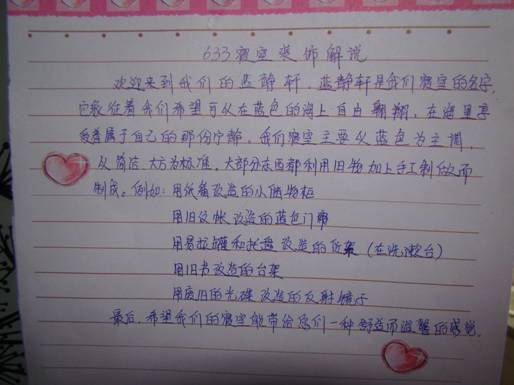 633寝室装饰解说
欢迎来到我们的蓝静轩，蓝静轩是我们寝室的名字，
它象征着我们希望可以在蓝色的海上自由翱翔，在海里享
受着属于自己的那份宁静，我们寝室主要以蓝色为主调，
以简洁、大方为标准，大部分东西都利用旧物加上手工制做而
制成。例如：用纸箱改造的小储物柜
用旧蚊帐改造的蓝色门帘
用易拉罐和托盘改造的置架（在洗漱台）
用旧书改造的台架
用废旧的光碟改造的反射镜子
最后，希望我们的寝室能带给你们一种舒适而温馨的感觉。